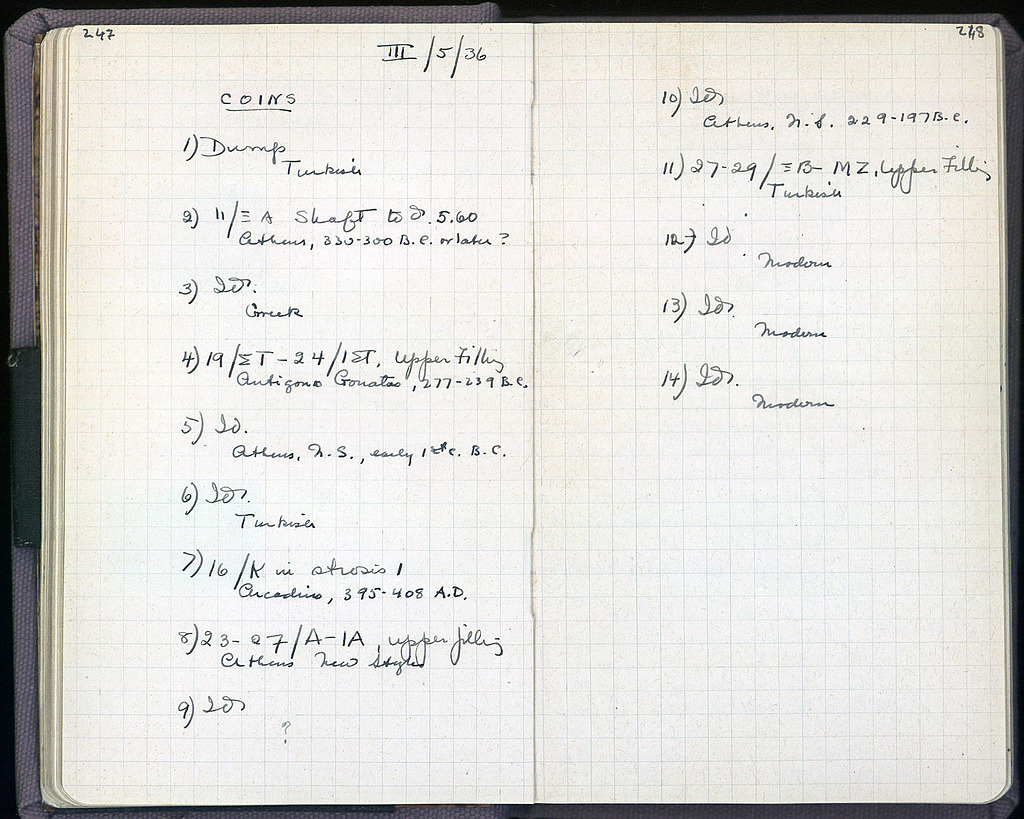 247
III/5/36
COINS
1) Dump
Turkish
2) 11/Ξ A Shaft to d. 5.60
Athens, 330-300 B.C. or later?
3) Id.
Greek
4) 19/ΣT-24/IΣT, Upper Filling
Antigonos Gonatas, 277-239 B.C.
5) Id.
Athens, N.S., early 1st c. B.C.
6) Id.
Turkish
7) 16/K in strosis 1
Arcadius, 395-408 A.D.
8) 23-27/A-IA, upper filling
Athens New Style
9) Id
?
248
10) Id
Athens, N.S. 229-197 B.C.
11) 27-29/ΞB-MZ, Upper Filling
Turkish
12) Id
Modern
13) Id.
Modern
14) Id.
Modern